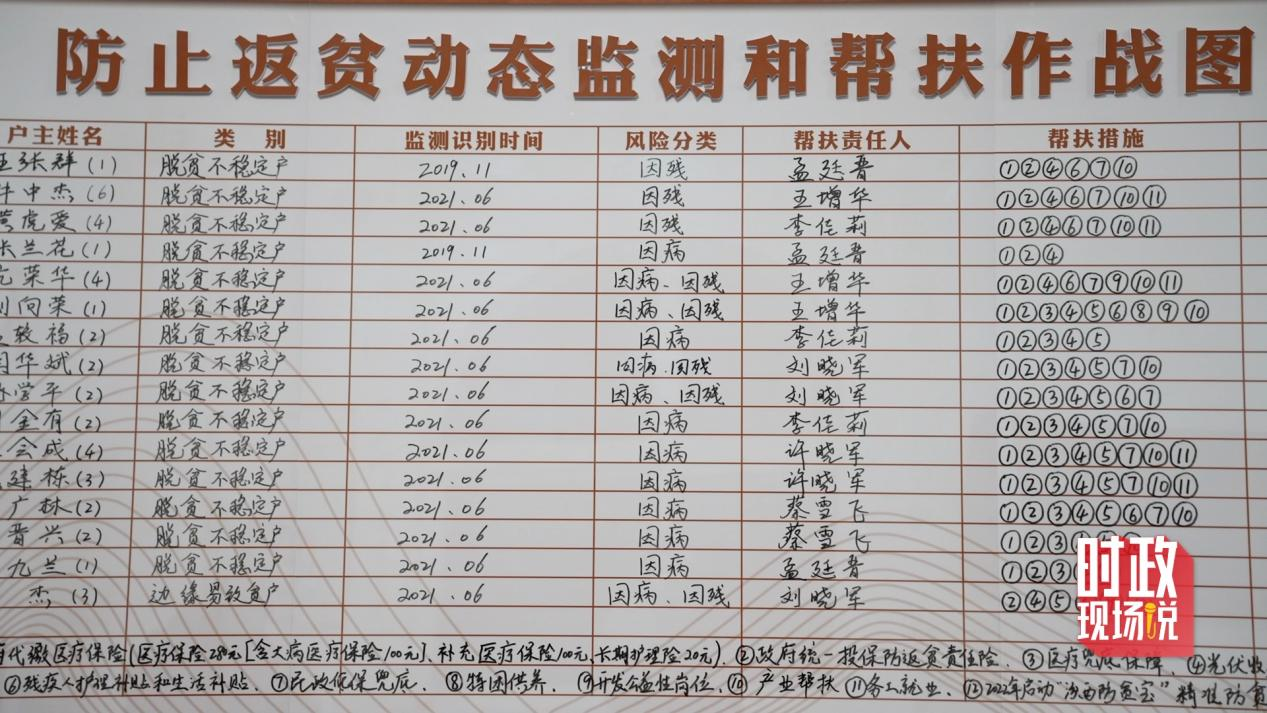 防止返贫动态监测和帮扶作战图
户主姓名 类 别 监测识别时间 风险分类 帮扶责任人 帮扶措施
张群(1) 脱贫不稳定户 2019.11 因残 孟廷晋 ①②④⑥⑦⑩
中杰(6) 脱贫不稳定户 2021.06 因残 王增华 ①②④⑥⑦⑩⑪
虎爱(4) 脱贫不稳定户 2021.06 因残 李佳莉 ①②④⑥⑦⑩⑪
兰花(1) 脱贫不稳定户 2019.11 因病 孟廷晋 ①②④
荣华(4) 脱贫不稳定户 2021.06 因病、因残 王增华 ①②④⑥⑦⑨⑩⑪
向荣(1) 脱贫不稳定户 2021.06 因病、因残 王增华 ①②③④⑤⑥⑧⑨⑩
福(2) 脱贫不稳定户 2021.06 因病 李佳莉 ①②③④⑤
华斌(2) 脱贫不稳定户 2021.06 因病、因残 刘晓军 ①②③④⑤⑦⑩
学平(2) 脱贫不稳定户 2021.06 因病、因残 刘晓军 ①②③④⑤⑥⑦
金有(2) 脱贫不稳定户 2021.06 因病 李佳莉 ①②③④⑤⑦⑩
会成(4) 脱贫不稳定户 2021.06 因病 许晓军 ①②③④⑤⑦⑩⑪
建栋(3) 脱贫不稳定户 2021.06 因病 许晓军 ①②③④⑤⑦⑩⑪
广林(2) 脱贫不稳定户 2021.06 因病 蔡雪飞 ①②③④⑤⑥⑦⑩
晋兴(2) 脱贫不稳定户 2021.06 因病 蔡雪飞 ①②③
九兰(1) 脱贫不稳定户 2021.06 因病 孟廷晋 ①②③
杰(3) 边缘易致贫户 2021.06 因病、因残 刘晓军 ②④⑤
时政
现场说
代缴医疗保险(医疗保险280元[含大病医疗保险100元]、补充医疗保险100元、长期护理险20元)、②政府统一投保防返贫责任险、③医疗兜底保障、④光伏收
⑥残疾人护理补贴和生活补贴、⑦民政低保兜底、⑧特困供养、⑨开发公益性岗位、⑩产业帮扶⑪务工就业、⑫2022年启动“汾西防贫宝”精准防贫